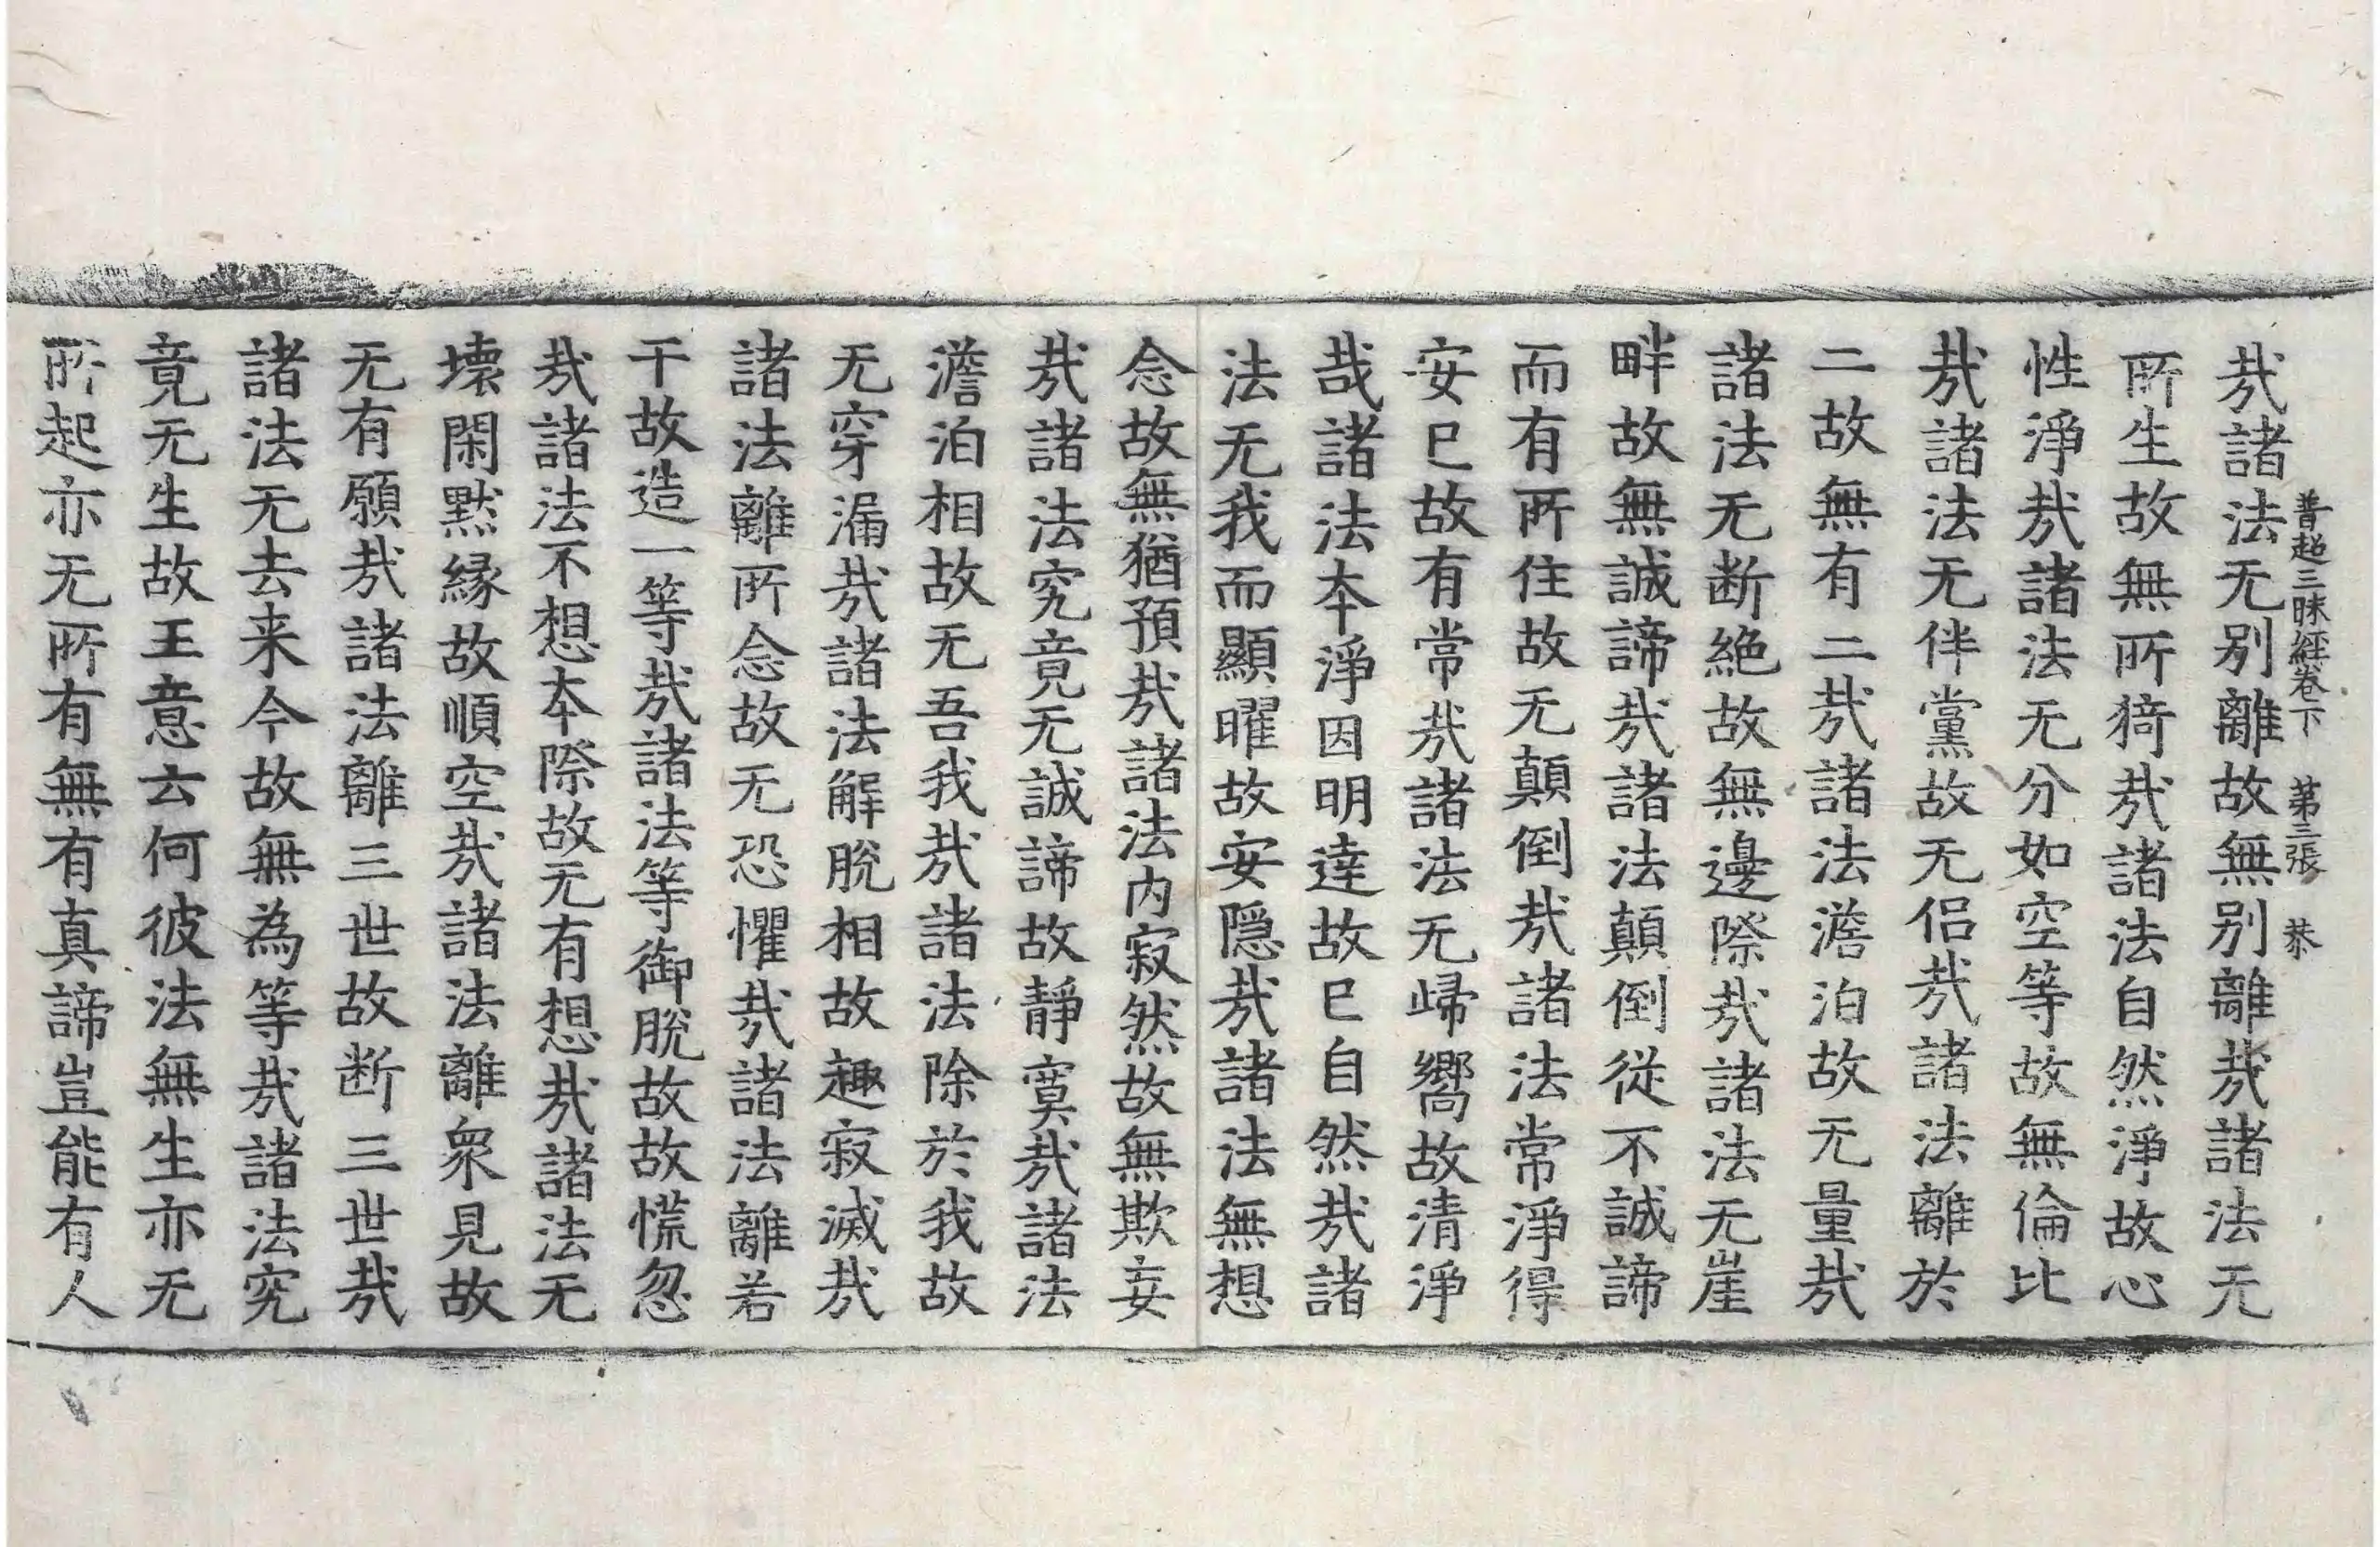 普超三昧經卷下　第三張　恭
㢤諸法无別離故無別離㢤諸法无
所生故無所猗㢤諸法自然淨故心
性淨㢤諸法无分如空等故無倫比
㢤諸法无伴黨故无侣㢤諸法離於
二故無有二㢤諸法澹泊故无量㢤
諸法无断絶故無邊際㢤諸法无崖
畔故無誠諦㢤諸法顛倒從不誠諦
而有所住故无顛倒㢤諸法常淨得
安已故有常㢤諸法无歸嚮故清淨
哉諸法本淨因明達故已自然㢤諸
法无我而顯曜故安隱㢤諸法無想
念故無猶預㢤諸法内寂然故無欺妄
㢤諸法究竟无誠諦故靜寞㢤諸法
澹泊相故无吾我㢤諸法除於我故
无穿漏㢤諸法解脫相故趣寂滅㢤
諸法離所念故无恐懼㢤諸法離若
干故造一等㢤諸法等御脫故故慌忽
㢤諸法不想本際故无有想㢤諸法无
壞閑默緣故順空㢤諸法離衆見故
无有願㢤諸法離三世故断三世㢤
諸法无去来今故無為等㢤諸法究
竟无生故王意云何彼法無生亦无
所起亦无所有無有真諦豈能有人